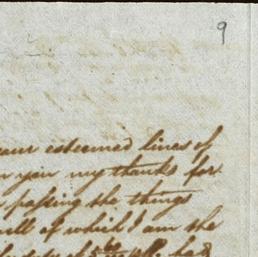 9
your esteemed lines of
you my thanks for
passing the things
all of which I am the
had